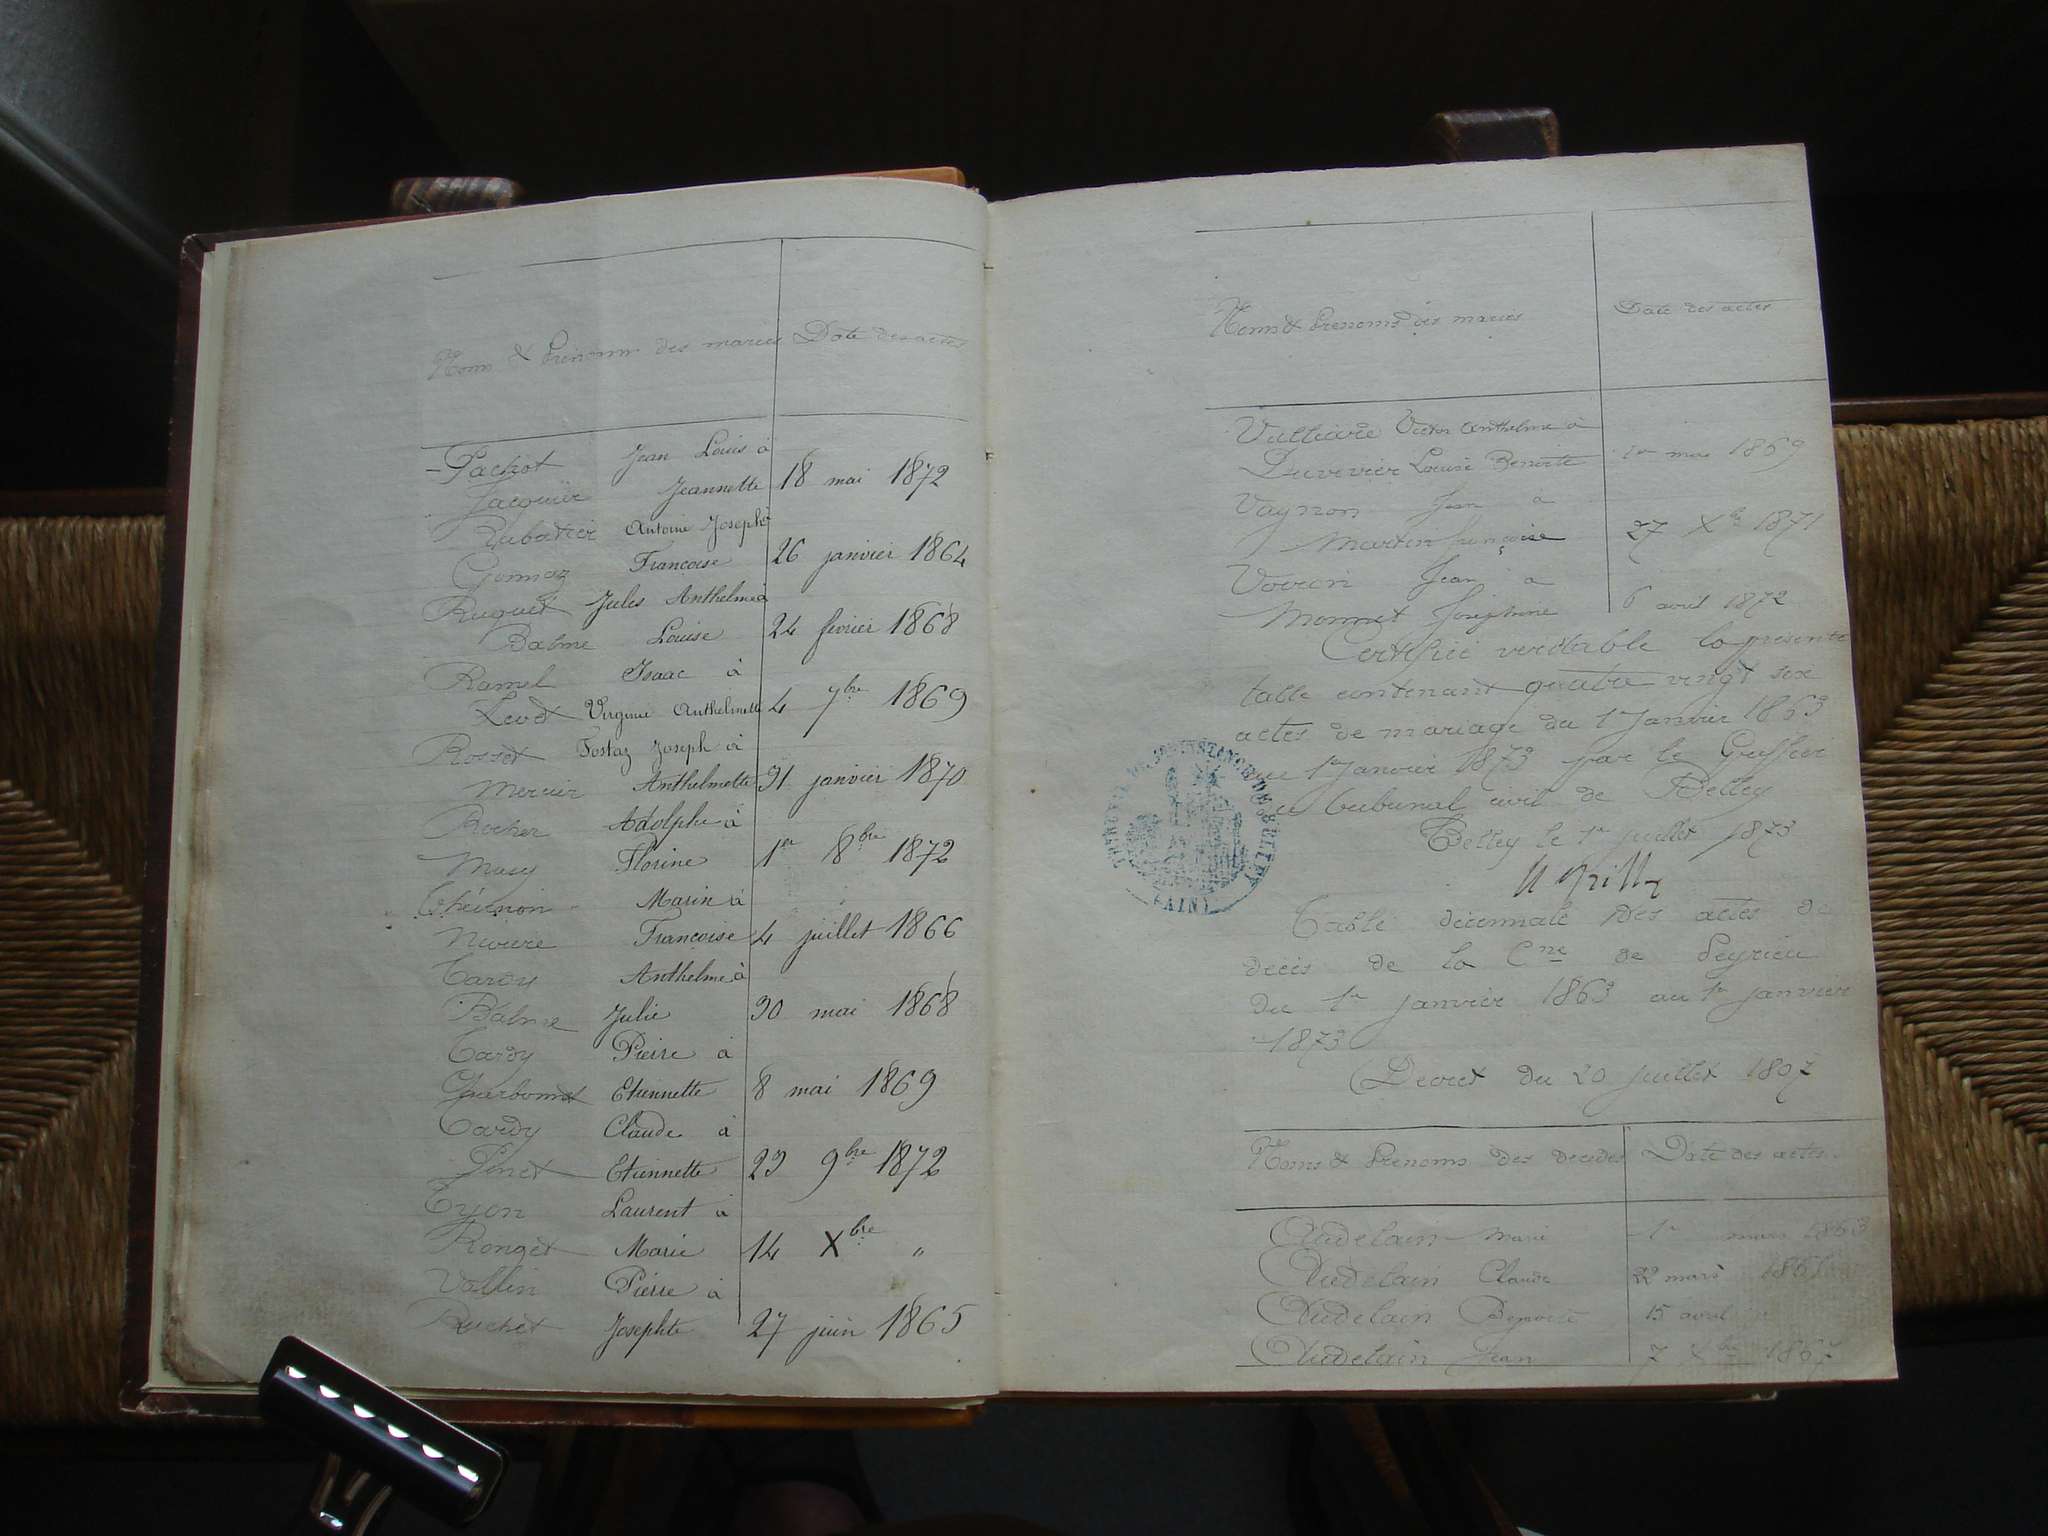 Noms & Prénoms des mariés Date des actes
Pachot Jean Louis à
Jacquier Jeannette 18 mai 1872
Rubatier Antoine Joseph à
Gonnaz Françoise 26 janvier 1864
Ruguet Jules Anthelme à
Balme Louise 24 février 1868
Ramel Isaac à
Levet Virginie Anthelmette 4 7bre 1869
Rosset Tostaz Joseph à
Mercier Anthelmette 31 janvier 1870
Rocher Adolphe à
Florine 1er 8bre 1872
Thévenon Marin à
Françoise 4 juillet 1866
Tardy Anthelme à
Balme Julie 30 mai 1868
Tardy Pierre à
Charbonnet Etiennette 8 mai 1869
Tardy Claude à
Pinet Etiennette 23 9bre 1872
Tyon Laurent à
Ronget Marie 14 Xbre "
Vallin Pierre à
Ruchet Josephte 27 juin 1865
Noms & Prenoms des mariés Date des actes
Victor Anthelme à
Duvivier Louise Benoite 1er mai 1869
Jean à
Martin françoise 27 Xbre 1871
Jean à
Monnet Josephine 6 avril 1872
Certifiée veritable la présente
table contenant quatre vingt six
actes de mariage du 1er Janvier 1863
au 1er Janvier 1873 par le Greffier
du tribunal civil de Belley
Belley le 1er juillet 1873
TRIBUNAL DE 1re INSTANCE DE BELLEY
(AIN)
Table décennale des actes de
décès de la Cne de Peyrieu
du 1er janvier 1863 au 1er janvier
1873
Decret du 20 juillet 1807
Noms & Prenoms des décédés Date des actes
Audelain Marie 1er mars 1863
Audelain Claude 22 mars
Audelain Benoite 15 avril
Audelain Jean 7 Xbre 1867